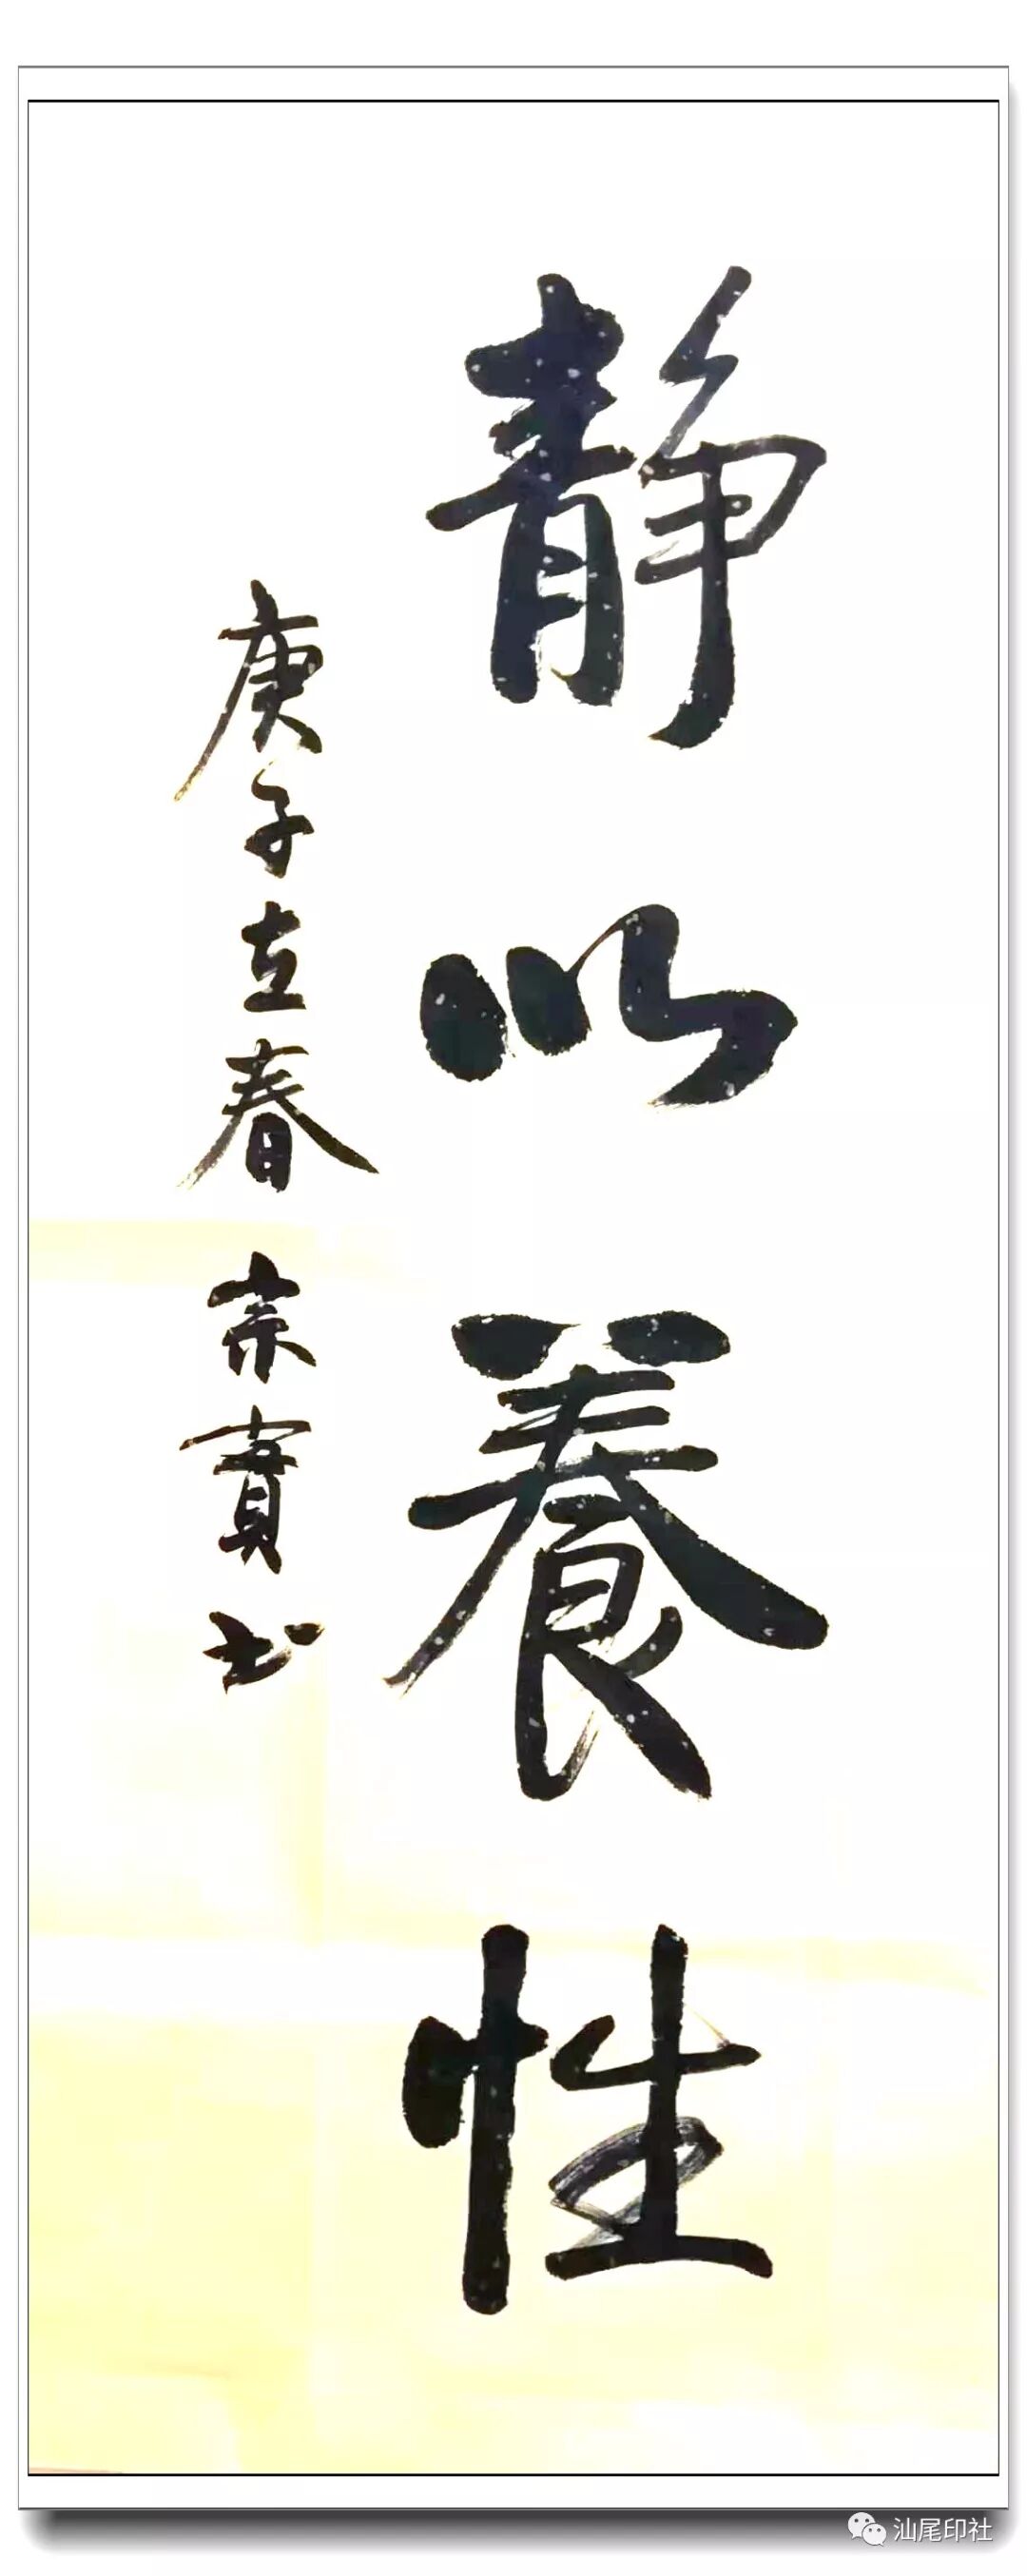 静以養性
庚子立春 宗實书
汕尾印社